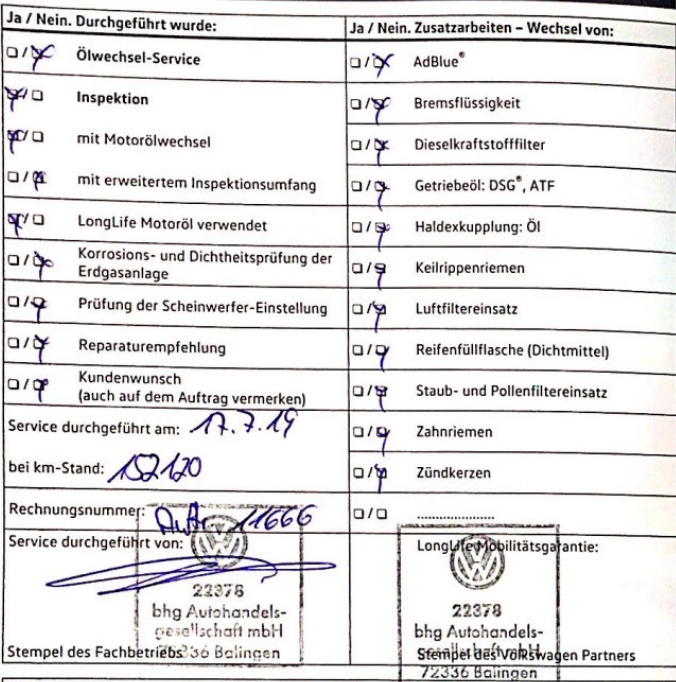 Ja / Nein. Durchgeführt wurde:
Ölwechsel-Service
Inspektion
mit Motorölwechsel
mit erweitertem Inspektionsumfang
LongLife Motoröl verwendet
Korrosions- und Dichtheitsprüfung der
Erdgasanlage
Prüfung der Scheinwerfer-Einstellung
Reparaturempfehlung
Kundenwunsch
(auch auf dem Auftrag vermerken)
Service durchgeführt am: 17.7.19
bei km-Stand: 152120
Rechnungsnummer: 11666
Service durchgeführt von:
22378
bhg Autohandels-
gesellschaft mbH
72336 Balingen
Stempel des Fachbetriebs
Ja / Nein. Zusatzarbeiten – Wechsel von:
AdBlue®
Bremsflüssigkeit
Dieselkraftstofffilter
Getriebeöl: DSG®, ATF
Haldexkupplung: Öl
Keilrippenriemen
Luftfiltereinsatz
Reifenfüllflasche (Dichtmittel)
Staub- und Pollenfiltereinsatz
Zahnriemen
Zündkerzen
......................
LongLife Mobilitätsgarantie:
22378
bhg Autohandels-
gesellschaft mbH
Stempel des Volkswagen Partners
72336 Balingen